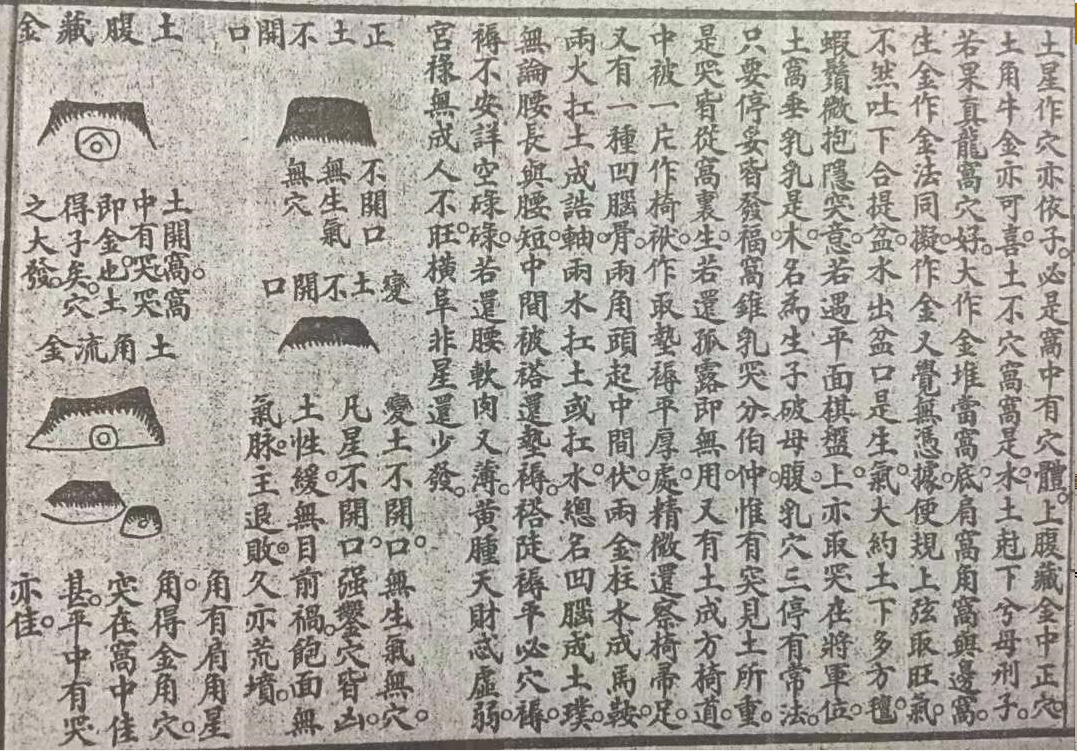 土星作穴亦依子。必是窩中有穴體。上腹藏金中正穴。
土角牛金亦可喜。土不穴窩窩是水。土尅下兮母刑子。
若果真龍窩穴好。大作金堆當窩底。肩窩角窩與邊窩。
生金作金法同擬。作金又覺無憑據。便規上弦取旺氣。
不然吐下合提盆。水出盆口是生氣。大約土下多方氊。
蝦鬚微抱隱突意。若遇平面棋盤上。亦取突在將軍位。
土窩垂乳乳是木。名為生子破母腹。乳穴三停有常法。
只要停妥皆發福。窩錐乳突分伯仲。惟有突見土所重。
是突皆從窩裏生。若還孤露即無用。又有土成方椅道。
中被一片作椅袱。作取墊褥平厚處。精微還察椅帚足。
又有一種凹腦骨。兩角頭起中間伏。兩金柱水成馬鞍。
兩火扛土成誥軸。兩水扛土或扛水。總名凹腦成土璞。
無論腰長與腰短。中間被褡還墊褥。褡陡褥平必穴褥。
褥不安詳空碌碌。若還腰軟肉又薄。黄腫夭財惑虛弱。
宮祿無成人不旺。橫阜非星還少發。
正土不開口
不開口
無生氣
無穴
變土不開口
變土不開口。無生氣無穴。
凡星不開口。强鑿穴皆凶。
土性緩。無目前禍。飽面無
氣脉。主退敗。久亦荒墳。
土腹藏金
土開窩。窩
中有突。突
即金也。土
得子矣。穴
之大發。
土角流金
角有肩角星
角。得金角穴。
突在窩中佳
甚。平中有突
亦佳。